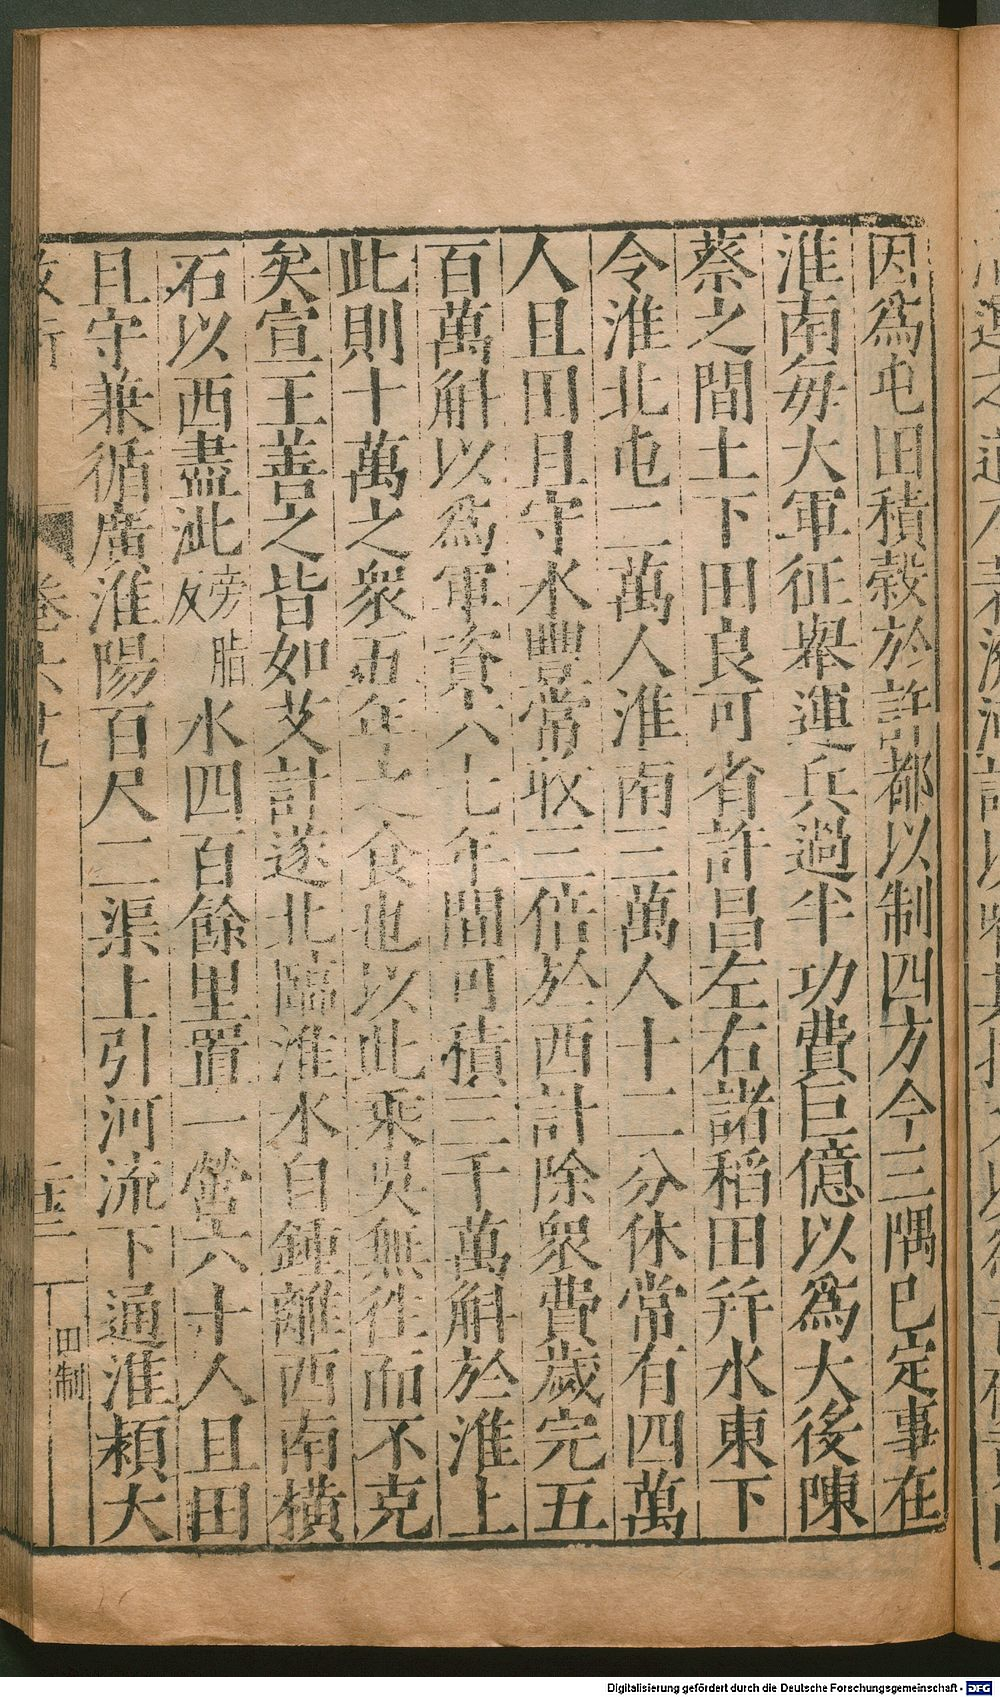 因爲屯田積穀於許都以制四方今三隅已定事在
淮南每大軍征舉運兵過半功費巨億以爲大後陳
蔡之間土下田良可省許昌左右諸稻田并水東下
令淮北屯二萬人淮南三萬人十二分休常有四萬
人且田且守水豐常收三倍於西計除衆費歲完五
百萬斛以爲軍資六七年間可積三千萬斛於淮上
此則十萬之衆五年之食也以此乘吳無徃而不克
矣宣王善之皆如艾計遂北臨淮水自鍾離西南橫
石以西盡沘旁脂反水四百餘里置一營六十人且田
且守兼循廣淮陽百尺二渠上引河流下通淮潁大
卷六十九
田制
Digitalisierung gefördert durch die Deutsche Forschungsgemeinschaft - DFG